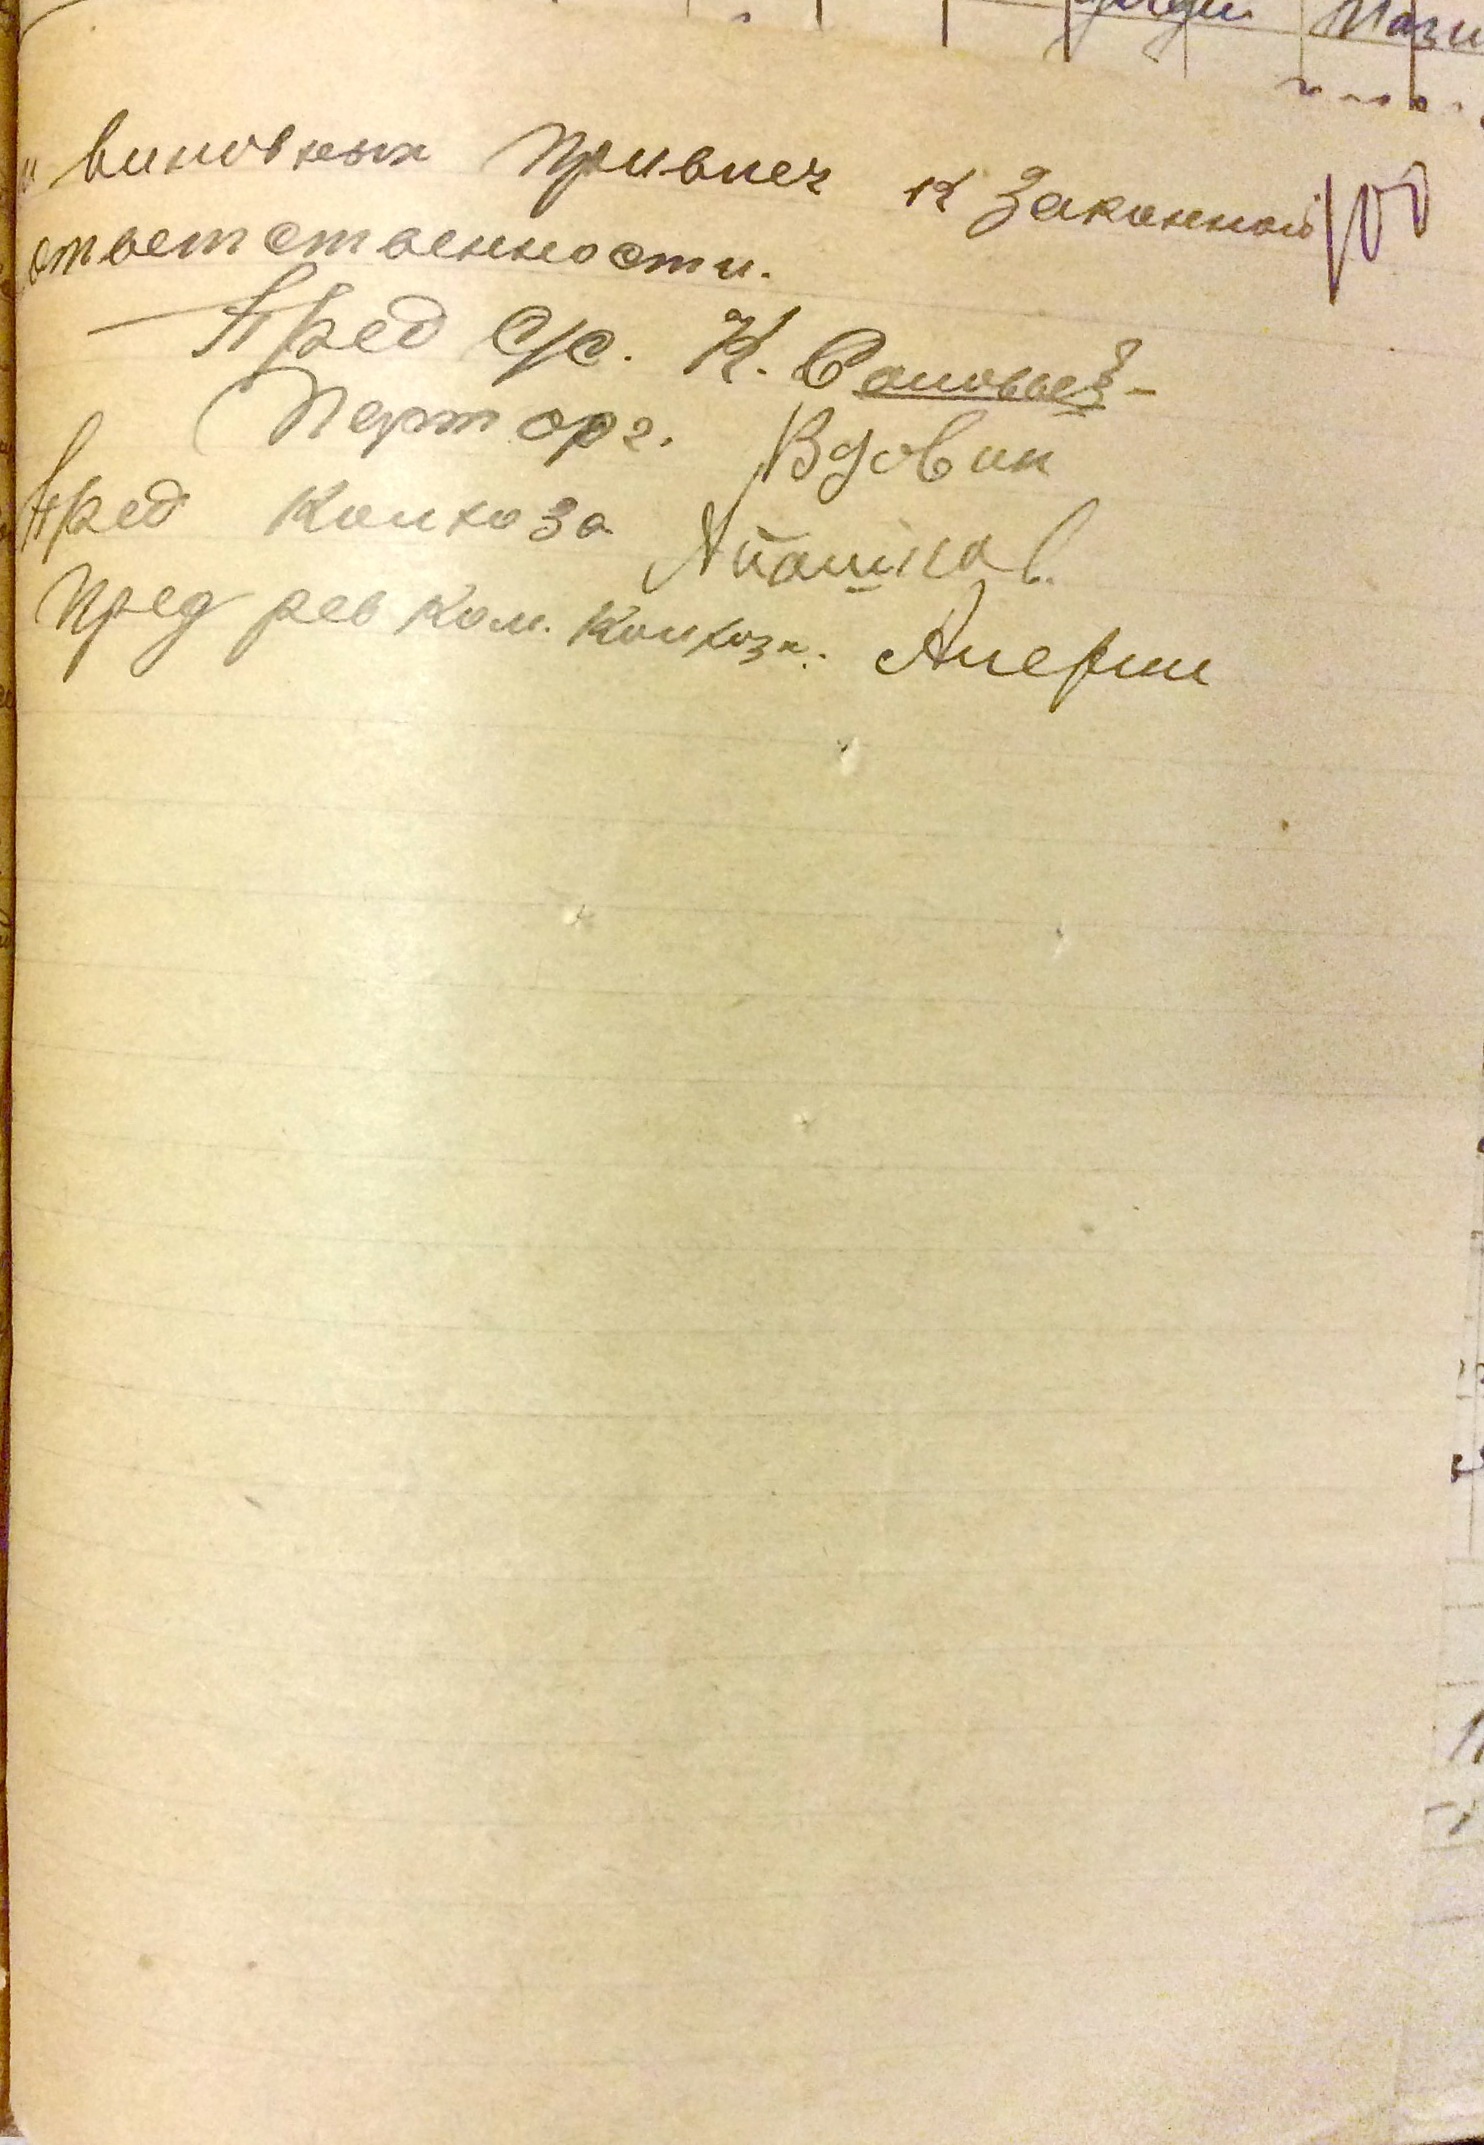 и виновных привлеч к законной
ответственности.
Пред с/с. К. Соловьев
Парторг. Вдовин
Пред колхоза
Пред рев ком. колхоза.
100